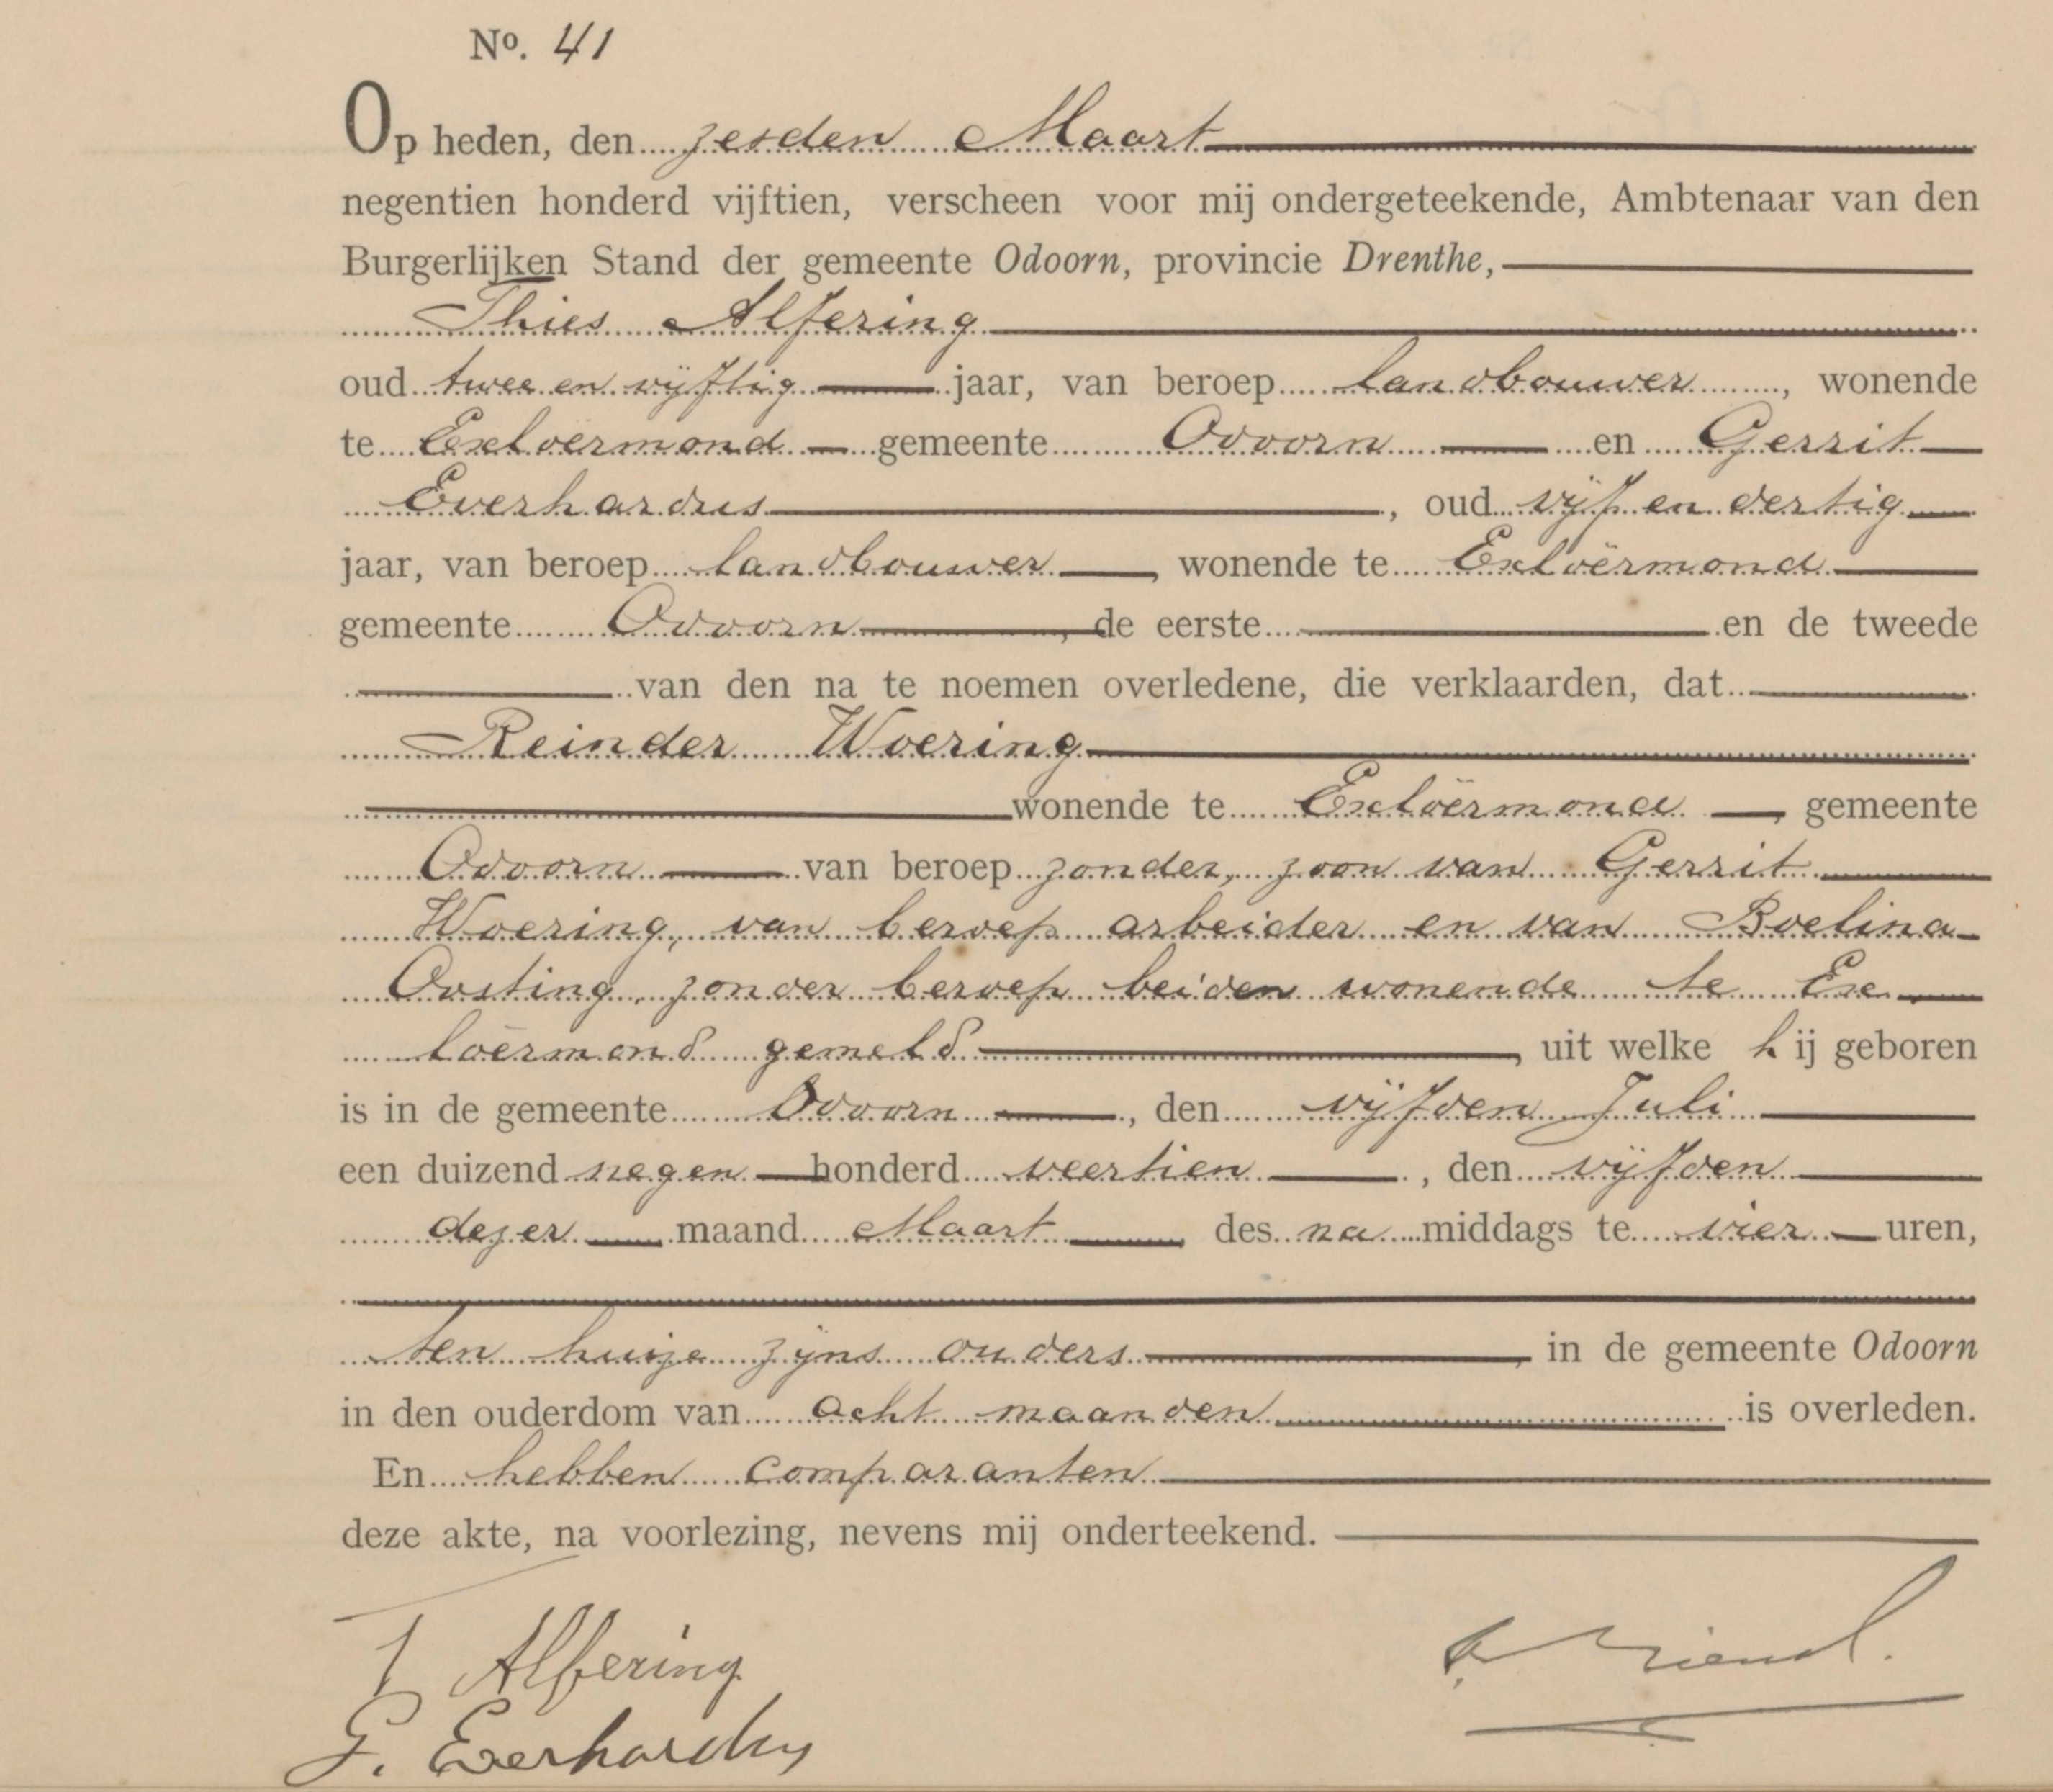 No. 41
Op heden, den zesden Maart
negentien honderd vijftien, verscheen voor mij ondergeteekende, Ambtenaar van den
Burgerlijken Stand der gemeente Odoorn, provincie Drenthe,
Thies Alfering
oud twee en vijftig jaar, van beroep landbouwer, wonende
te Exloërmond gemeente Odoorn en Gerrit
Everhardus, oud vijf en dertig
jaar, van beroep landbouwer, wonende te Exloërmond
gemeente Odoorn, de eerste en de tweede
van den na te noemen overledene, die verklaarden, dat
Reinder Woering
wonende te Exloërmond, gemeente
Odoorn van beroep zonder, zoon van Gerrit
Woering, van beroep arbeider en van Boelina
Oosting, zonder beroep beiden wonende te Ex
loërmond gemeld, uit welke hij geboren
is in de gemeente Odoorn, den vijfden Juli
een duizend negen honderd veertien, den vijfden
dezer maand Maart des na middags te vier uren,
ten huize zijns ouders, in de gemeente Odoorn
in den ouderdom van acht maanden is overleden.
En hebben comparanten
deze akte, na voorlezing, nevens mij onderteekend.
T Alfering
G. Everhardus